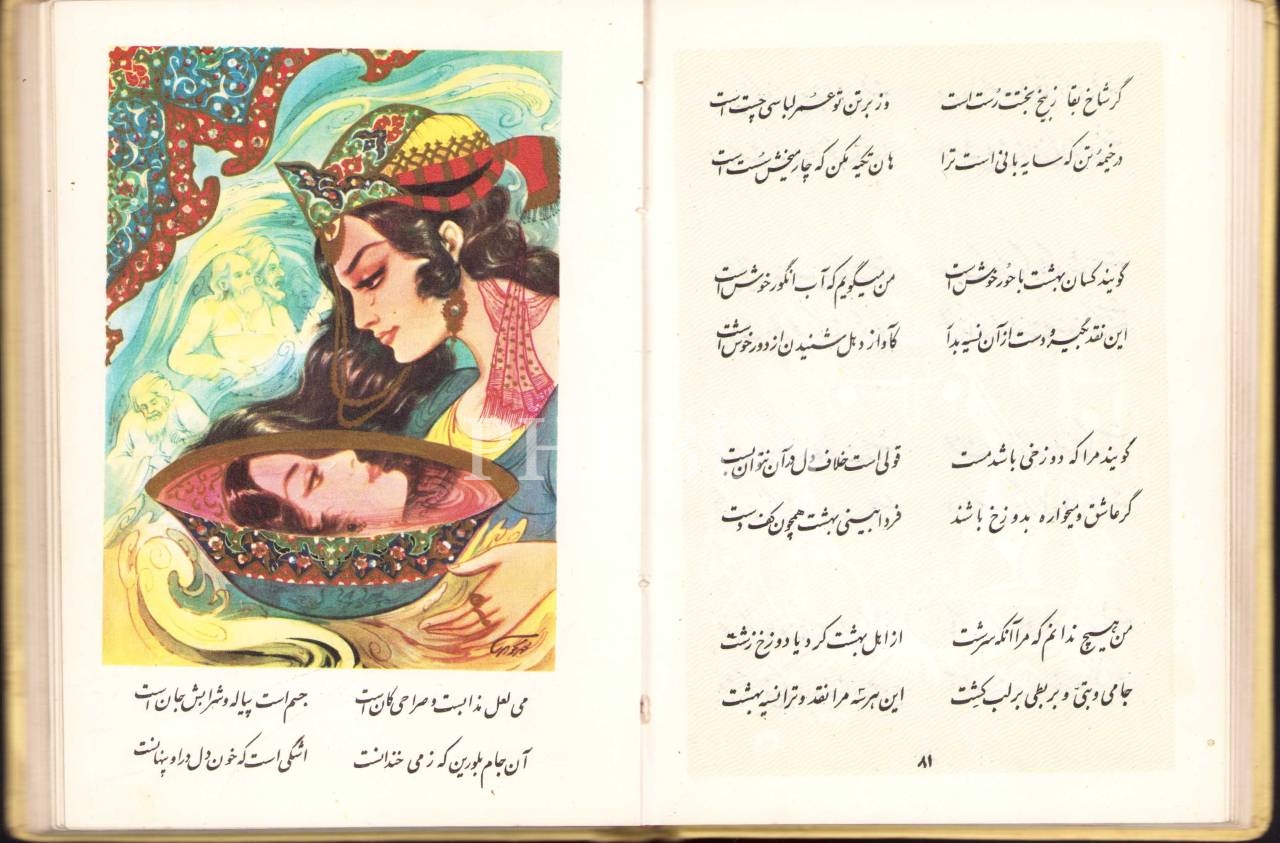 گر شاخ بقا ز بیخ بختت رست است وز بر تن تو عمر لباسی چست است
در خیمهٔ تن که سایه بانی است ترا هان تکیه مکن که چار میخش سست است
گویند کسان بهشت با حور خوش است من میگویم که آب انگور خوش است
این نقد بگیر و دست از آن نسیه بدار کآواز دهل شنیدن از دور خوش است
گویند مرا که دوزخی باشد مست قولی است خلاف دل در آن نتوان بست
گر عاشق و میخواره بدوزخ باشند فردا بینی بهشت همچون کف دست
من هیچ ندانم که مرا آنکه سرشت از اهل بهشت کرد یا دوزخ زشت
جامی و بتی و بربطی بر لب کشت این هر سه مرا نقد و ترا نسیه بهشت
۸۱
می لعل مذابست و صراحی کان است جسم است پیاله و شرابش جان است
آن جام بلورین که ز می خندانست اشکی است که خون دل در او پنهانست